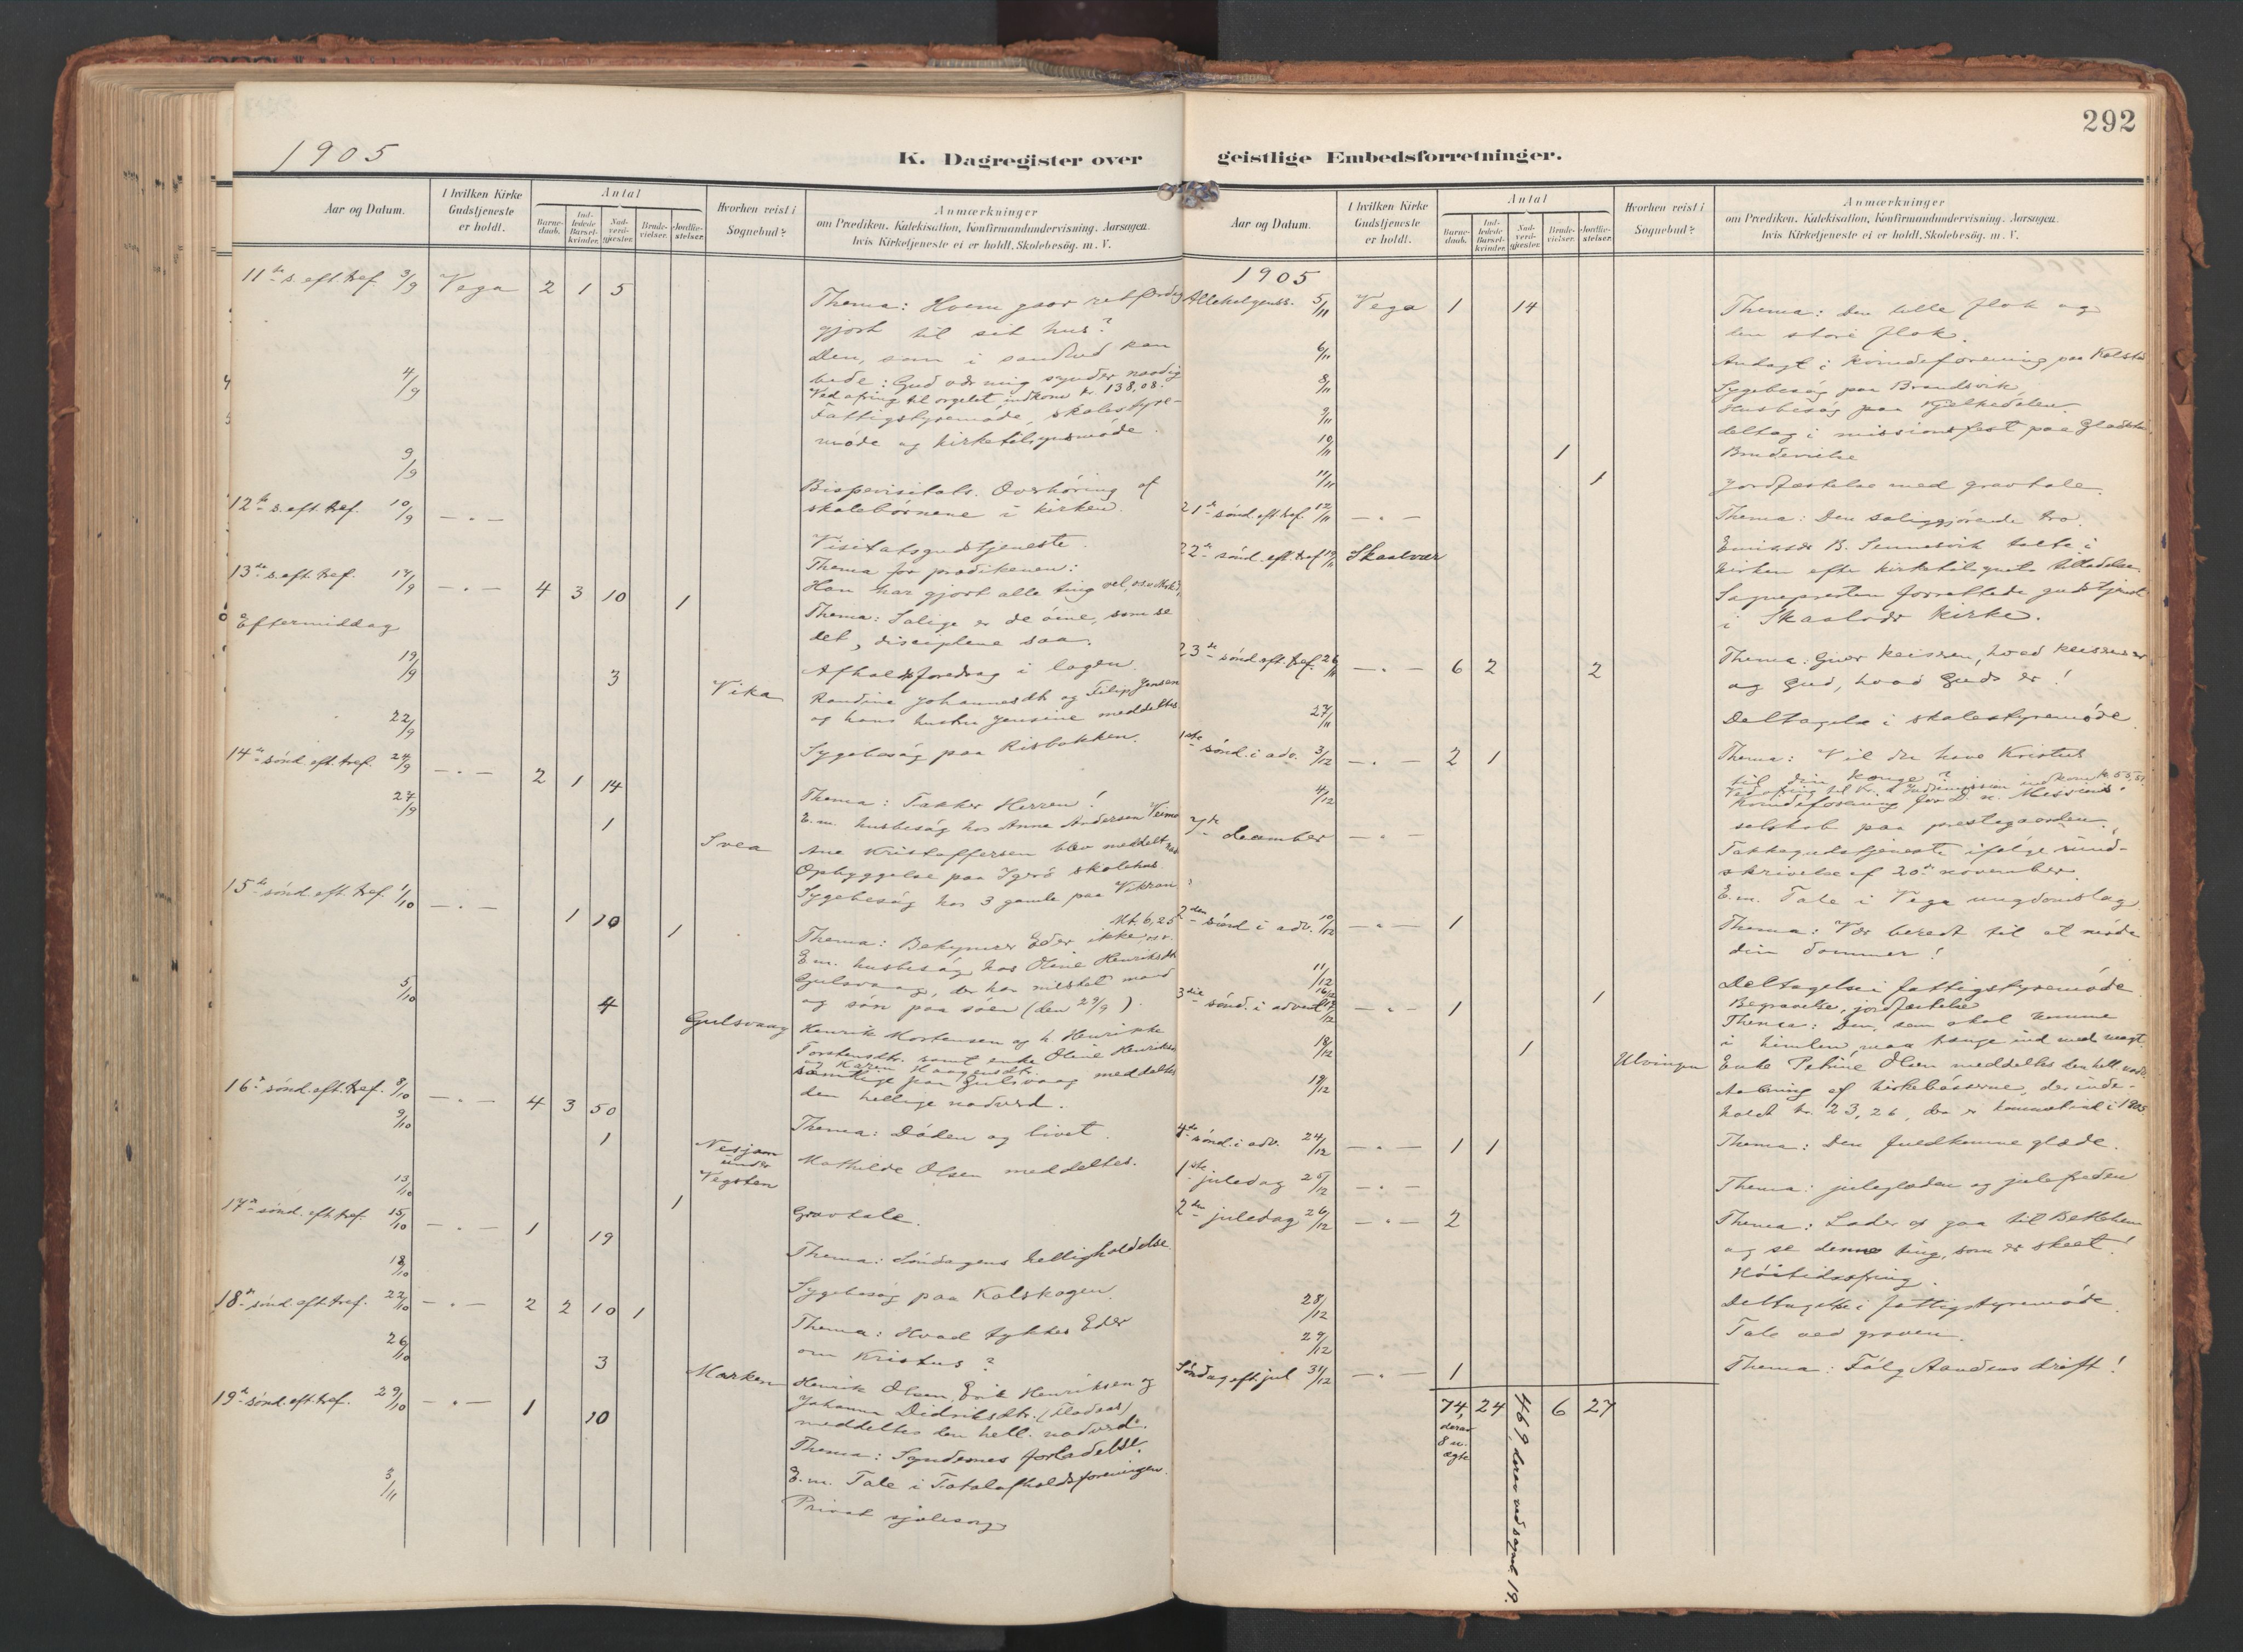 292
1905
K. Dagregister over geistlige Embedsforretninger.
Aar og Datum.
I hvilken Kirke Gudstjeneste er holdt.
Antal
Barnedaab.
Indledede Barselkvinder.
Nadverdgjester.
Brudevielser.
Jordfæstelser.
Hvorhen reist i Sognebud?
Anmærkninger
om Prædiken, Katekisation, Konfirmandundervisning. Aarsagen,
hvis Kirketjeneste ei er holdt, Skolebesög. m. V.
11te s. eft. tref. 3/9 Vega 2 1 5
Thema: Hvem gaar retfærdig
gjort til sit hus?
Den, som i sandhed kan
bede: Gud vær mig synder naadig
Ved ofring til orgelet indkom kr. 138,08.
4/9 Fattigstyremøde, skolestyre-
møde og kirketilsynsmøde.
9/9 Bispevisitats. Overhøring af
skolebørnene i kirken.
12te s. eft. tref. 10/9 — „ —
Visitatsgudstjeneste.
Thema for prædikenen:
Han har gjort alle ting vel,
13de s. eft. tref. 17/9 — „ — 4 3 10 1
Thema: Salige er de öine, som se
det, disciplene saa.
Eftermiddag
Afholdsforedrag i lagen.
19/9 3 Vika Randine Johannesdt. og Filip Jensen
og hans hustru Jensine meddeltes
22/9 Sygebesøg paa Risbakken.
14de sönd. eft. tref. 24/9 — „ — 2 1 14
Thema: Takker Herren!
E.m. husbesøg hos Anna Andersen
27/9 1 Svea Ane Kristoffersen blev meddelt
Opbyggelse paa Igerø skolehus.
Sygebesøg hos 3 gamle paa Vikran
15de sönd. eft. tref. 1/10 — „ — 1 10 1
Mt. 6,25
Thema: Bekymrer Eder ikke
E.m. husbesøg hos Oline Henriksdt.
Gulsvaag, der har mistet mand
og søn paa søen (den 29/9).
5/10 4 Gulsvaag Henrik Mortensen og h. Henrikke
Torstensdtr. samt enke Oline Henriksdt.
og Karen Haagensdtr.
samtlige paa Gulsvaag meddeltes
den hellige nadverd.
16de sönd. eft. tref. 8/10 — „ — 4 3 50
Thema: Døden og livet.
9/10 1 Nesjom
under
Vegsten
Mathilde Olsen meddeltes.
13/10 1 Gravtale.
17de sönd. eft. tref. 15/10 — „ — 1 19
Thema: Söndagens helligholdelse.
18/10 Sygebesøg paa Kalskagen.
18de sönd. eft. tref. 22/10 — „ — 2 2 10 1
Thema: Hvad tykkes Eder
om Kristus?
26/10 3 Marken Henrik Olsen, Erik Henriksen og
Johanna Didriksdtr.
meddeltes den hell. nadverd.
19de sönd. eft. tref. 29/10 — „ — 1 10
Thema: Syndernes forladelse.
E.m. Tale i Totalafholdsforeningen.
3/11 Privat sjælesorg
Aar og Datum.
I hvilken Kirke Gudstjeneste er holdt.
Antal
Barnedaab.
Indledede Barselkvinder.
Nadverdgjester.
Brudevielser.
Jordfæstelser.
Hvorhen reist i Sognebud?
Anmærkninger
om Prædiken, Katekisation, Konfirmandundervisning. Aarsagen,
hvis Kirketjeneste ei er holdt, Skolebesög. m. V.
1905
Allehelgenss. 5/11 Vega 1 14
Thema: Den lille flok og
den store flok.
6/11 Andagt i kvindeforening paa Kalstad
8/11 Sygebesøg paa Brandsvik
Husbesøg paa
9/11 deltog i missionsfest paa Gladstad
10/11 1 Brudevielse
11/11 1 Jordfæstelse med gravtale.
21de sönd. eft. tref. 12/11 — „ —
Thema: Den saliggjørende tro.
22de sönd. eft. tref. 19/11 Skaalvær
Emissær B. Sennesvik talte i
kirken efter kirketilsynets tilladelse.
Sognepresten forrettede gudstjenest
i Skaalvær kirke.
23de sönd. eft. tref. 26/11 — „ — 6 2 2
Thema: Giver keiseren, hvad keiserens er
og Gud, hvad Guds er!
27/11 Deltagelse i skolestyremøde.
1ste sönd. i adv. 3/12 — „ — 2 1
Thema: Vil du have Kristus
til din konge?
Ved ofring til indremission indkom kr. 55,
4/12 Kvindeforening for D. n. Missions-
selskab paa prestegaarden.
7de december — „ —
Takkegudstjeneste ifølge rund-
skrivelse af 20de november.
E.m. Tale i Vega ungdomslag
2den sönd i adv. 10/12 — „ — 1
Thema: Vær beredt til at møde
din dommer!
11/12 Deltagelse i fattigstyremøde.
16/12 1 Begravelse, jordfæstelse
3die sönd. i advent 17/12 — „ — 1
Thema: Den, som skal komme
i himlen, maa trænge ind med magt.
18/12 1 Ulvingen Enke Petrine Olsen meddeltes den hell. nadv.
19/12 Aabning af kirkebøsserne, der inde-
holdt kr. 23,26, der er kommet ind i 1905.
4de sönd. i adv. 24/12 — „ — 1 1
Thema: Den fuldkomne glæde.
1ste juledag 25/12 — „ —
Thema: juleglæden og julefreden
2den juledag 26/12 — „ — 2
Thema: Lader os gaa til Bethlehem
og se denne ting, som er skeet!
Høitidsofring.
28/12 Deltagelse i fattigstyremøde.
29/12 Tale ved graven.
Søndag eft. jul 31/12 — „ — 1
Thema: Følg Aandens drift!
74, 24 469, deraf ved sognebud 19. 6 27
deraf
8 u-
ægte